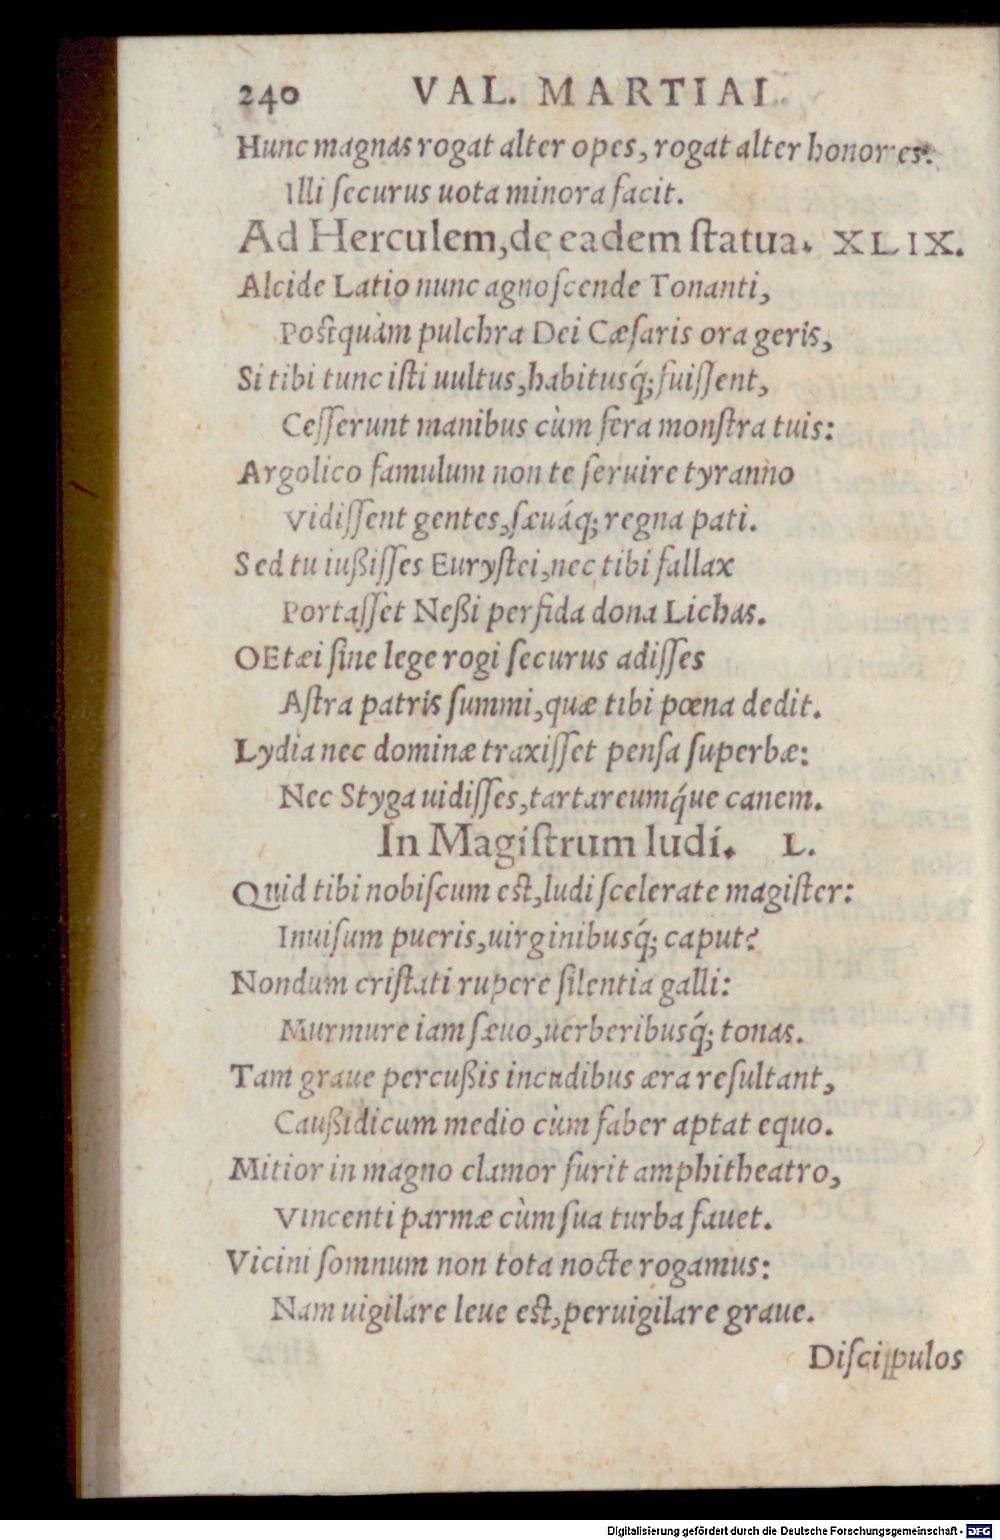 240 VAL. MARTIAL.
Hunc magnas rogat alter opes, rogat alter honores.
Illi ſecurus uota minora facit.
Ad Herculem, de eadem ſtatua. XLIX.
Alcide Latio nunc agnoſcende Tonanti,
Poſtquàm pulchra Dei Cæſaris ora geris,
Si tibi tunc iſti uultus, habitusq́; fuiſſent,
Ceſſerunt manibus cùm fera monſtra tuis:
Argolico famulum non te ſeruire tyranno
Vidiſſent gentes, ſæuáq; regna pati.
Sed tu iußiſſes Euryſtei, nec tibi fallax
Portaſſet Neßi perfida dona Lichas.
OEtæi ſine lege rogi ſecurus adiſſes
Aſtra patris ſummi, quæ tibi pœna dedit.
Lydia nec dominæ traxiſſet penſa ſuperbæ:
Nec Styga uidiſſes, tartareumq́ue canem.
In Magiſtrum ludi. L.
Quid tibi nobiſcum eſt, ludi ſcelerate magiſter:
Inuiſum pueris, uirginibusq́; caput?
Nondum criſtati rupere ſilentia galli:
Murmure iam ſæuo, uerberibusq́; tonas.
Tam graue percußis incudibus æra reſultant,
Caußidicum medio cùm faber aptat equo.
Mitior in magno clamor furit amphitheatro,
Vincenti parmæ cùm ſua turba fauet.
Vicini ſomnum non tota nocte rogamus:
Nam uigilare leue eſt, peruigilare graue.
Diſcipulos
Digitalisierung gefördert durch die Deutsche Forschungsgemeinschaft - DFG